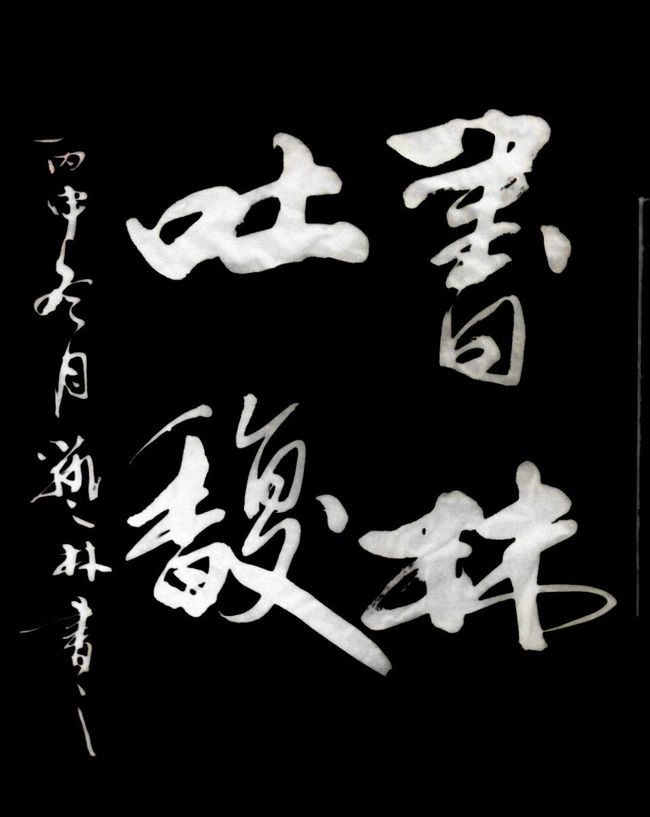 書林
吐馥
丙申冬月 林書